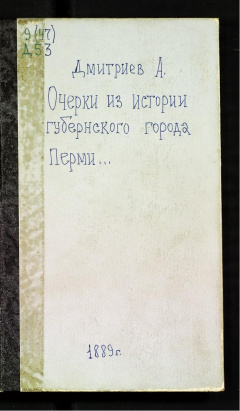 9(47)
Д53
Дмитриев А.
Очерки из истории
губернского города
Перми...
1889г.